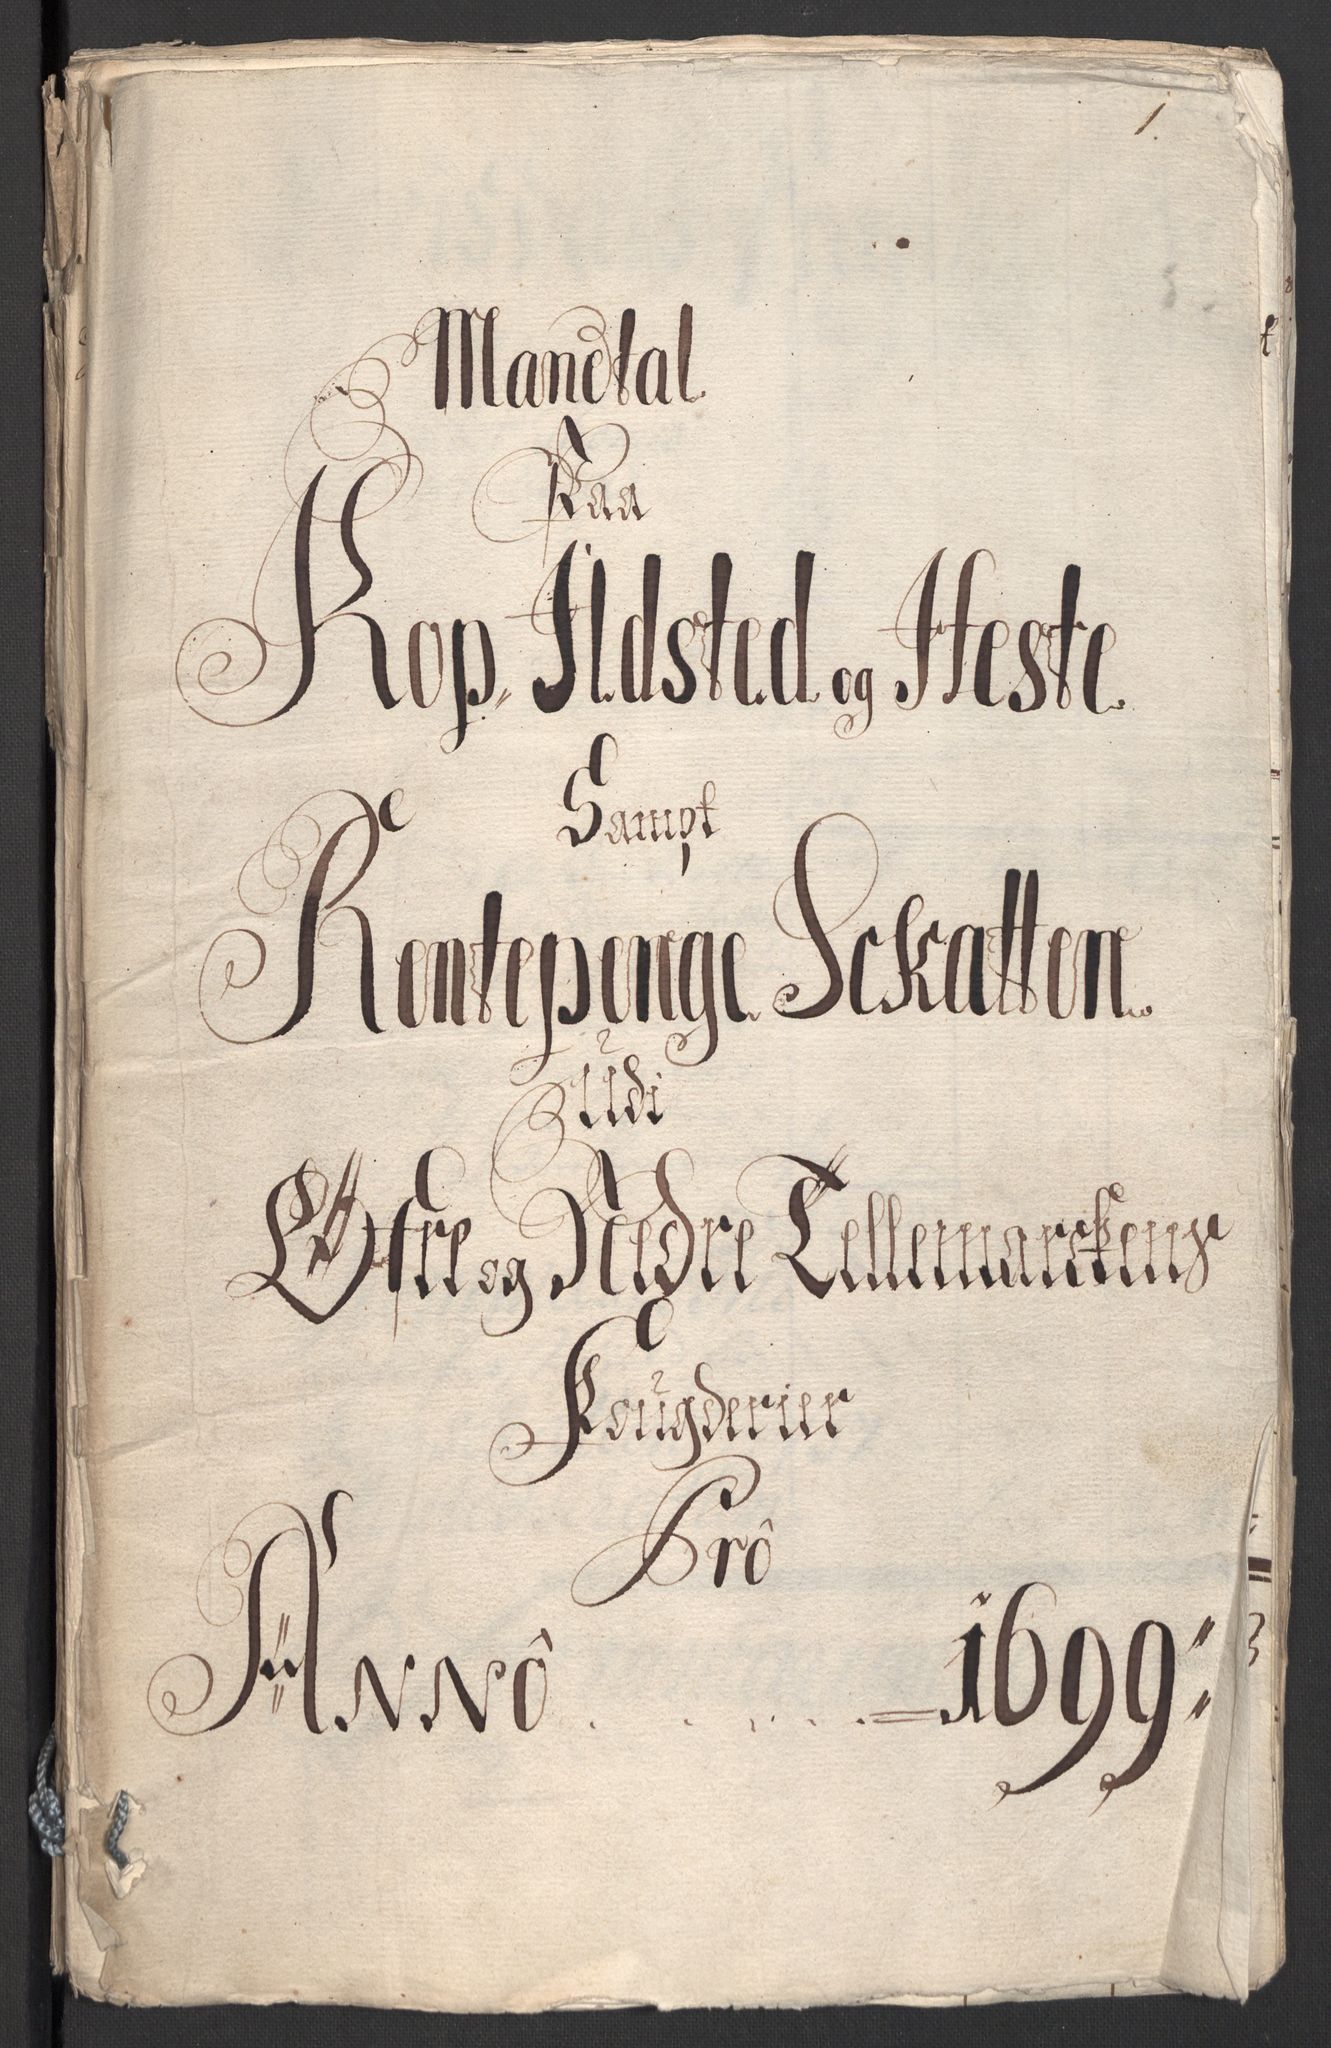 1.
Mandtal
Paa
Kop, Ildsted og Heste
Sampt
Rentepenge Skatten
Udi
Øfre og Nedre Tellemarckens
Fougderier
Prô
Annô ..... = 1699